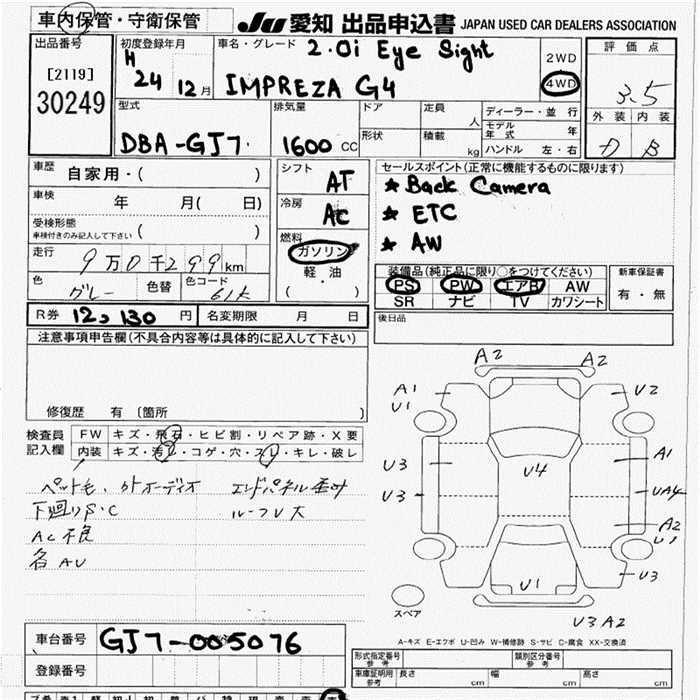 車内保管・守衛保管
JU 愛知 出品申込書 JAPAN USED CAR DEALERS ASSOCIATION
出品番号
[2119]
30249
初度登録年月
H
24 12月
車名・グレード 2.0i Eye Sight
IMPREZA G4
2WD
4WD
評価点
3.5
外装 内装
D B
型式
DBA-GJ7
排気量
1600 CC
ドア
形状
定員
人
積載
kg
ディーラー・並行
モデル年式 年
ハンドル 左・右
車歴 自家用・( )
車検 年 月( 日)
受検形態
車検付きのみ記入して下さい ( )
走行 9万0千299km
色 グレー 色替 色コード 61K
シフト AT
冷房 AC
燃料
ガソリン
軽・油
( )
セールスポイント(正常に機能するものに限ります)
★ Back Camera
★ ETC
★ AW
装備品(純正品に限り○をつけてください)
PS PW エアB AW
SR ナビ TV カワシート
新車保証書
有・無
R券 12,130 円 名変期限 月 日
後日品
注意事項申告欄(不具合内容等は具体的に記入して下さい)
修復歴 有 〔箇所 〕
検査員記入欄
FW キズ・飛石・ヒビ割・リペア跡・X要
内装 キズ・汚レ・コゲ・穴・スレ・キレ・破レ
ペット毛、外オーディオ
下廻りS・C
AC不良
各AU
エンドパネル歪み
ルーフU大
A2 A2
A1 U1
U2
U3
U3
U4
A1
UA4
A2
U1
U3
U1
U3 A2
スペア
A-キズ E-エクボ U-凹み W-補修跡 S-サビ C-腐食 XX-交換済
車台番号 GJ7-005076
登録番号
形式指定番号 参考
類別区分番号 参考
車庫証明用 参考 長さ cm 幅 cm 高さ cm